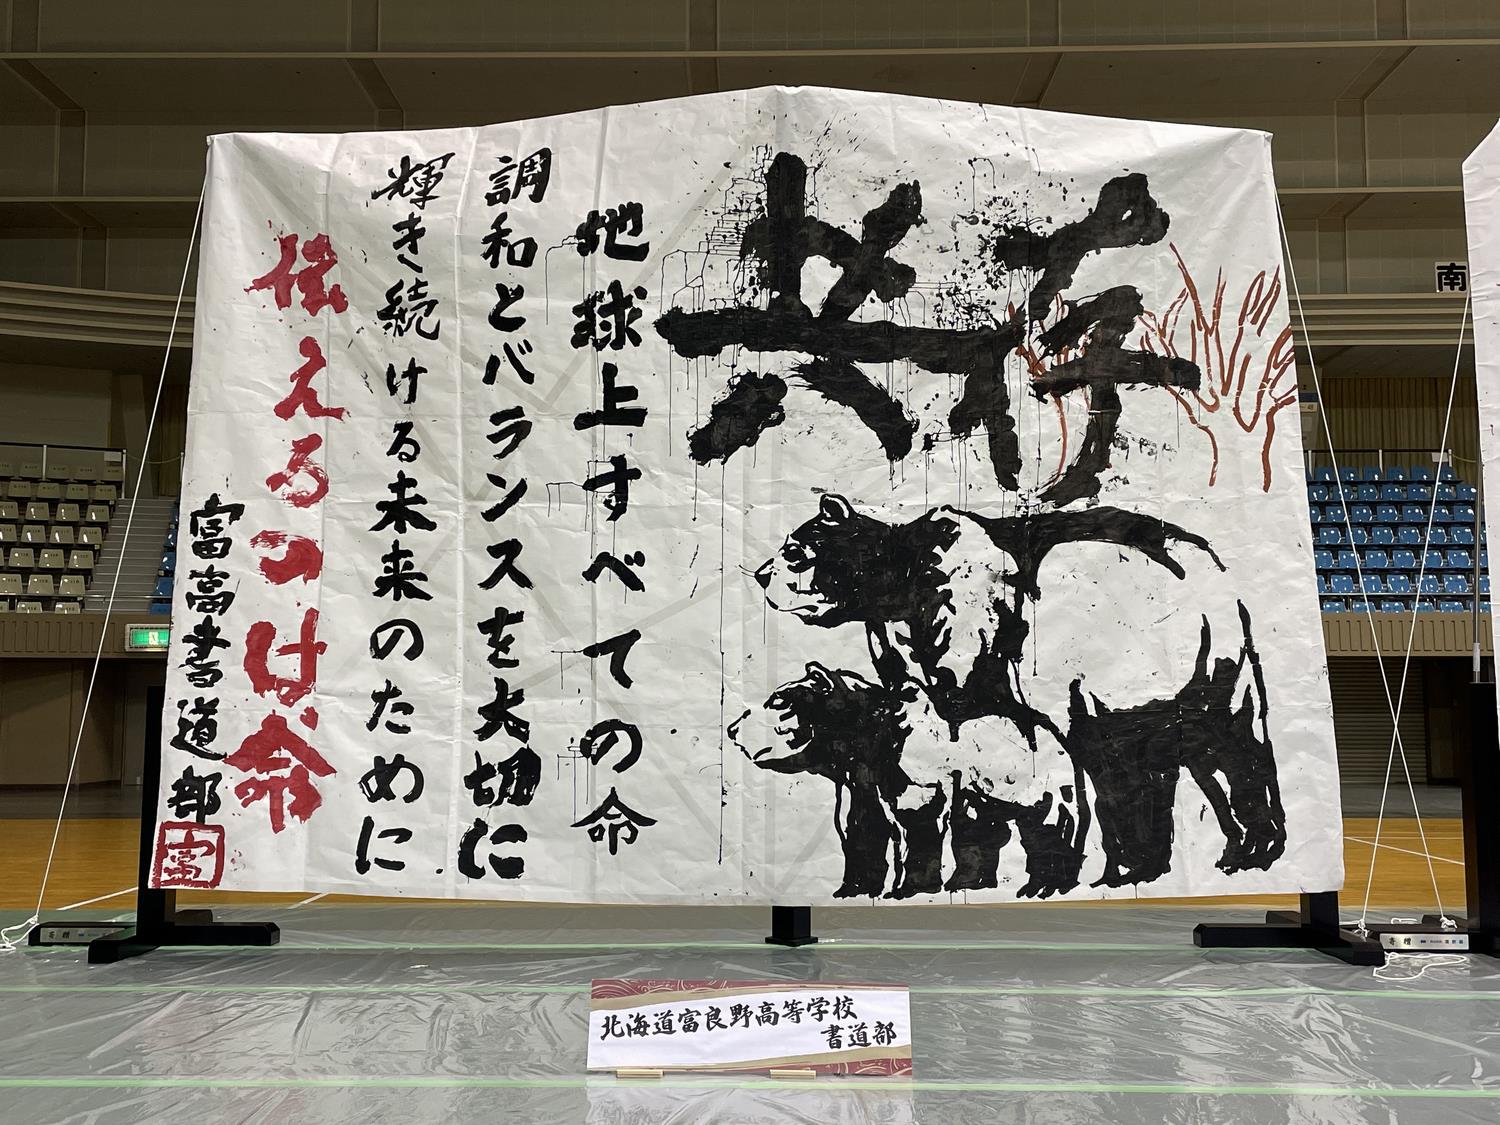 共存
地球上すべての命
調和とバランスを大切に
輝き続ける未来のために
伝えろ 命
富高書道部
富
北海道富良野高等学校
書道部
南
寄贈
寄贈